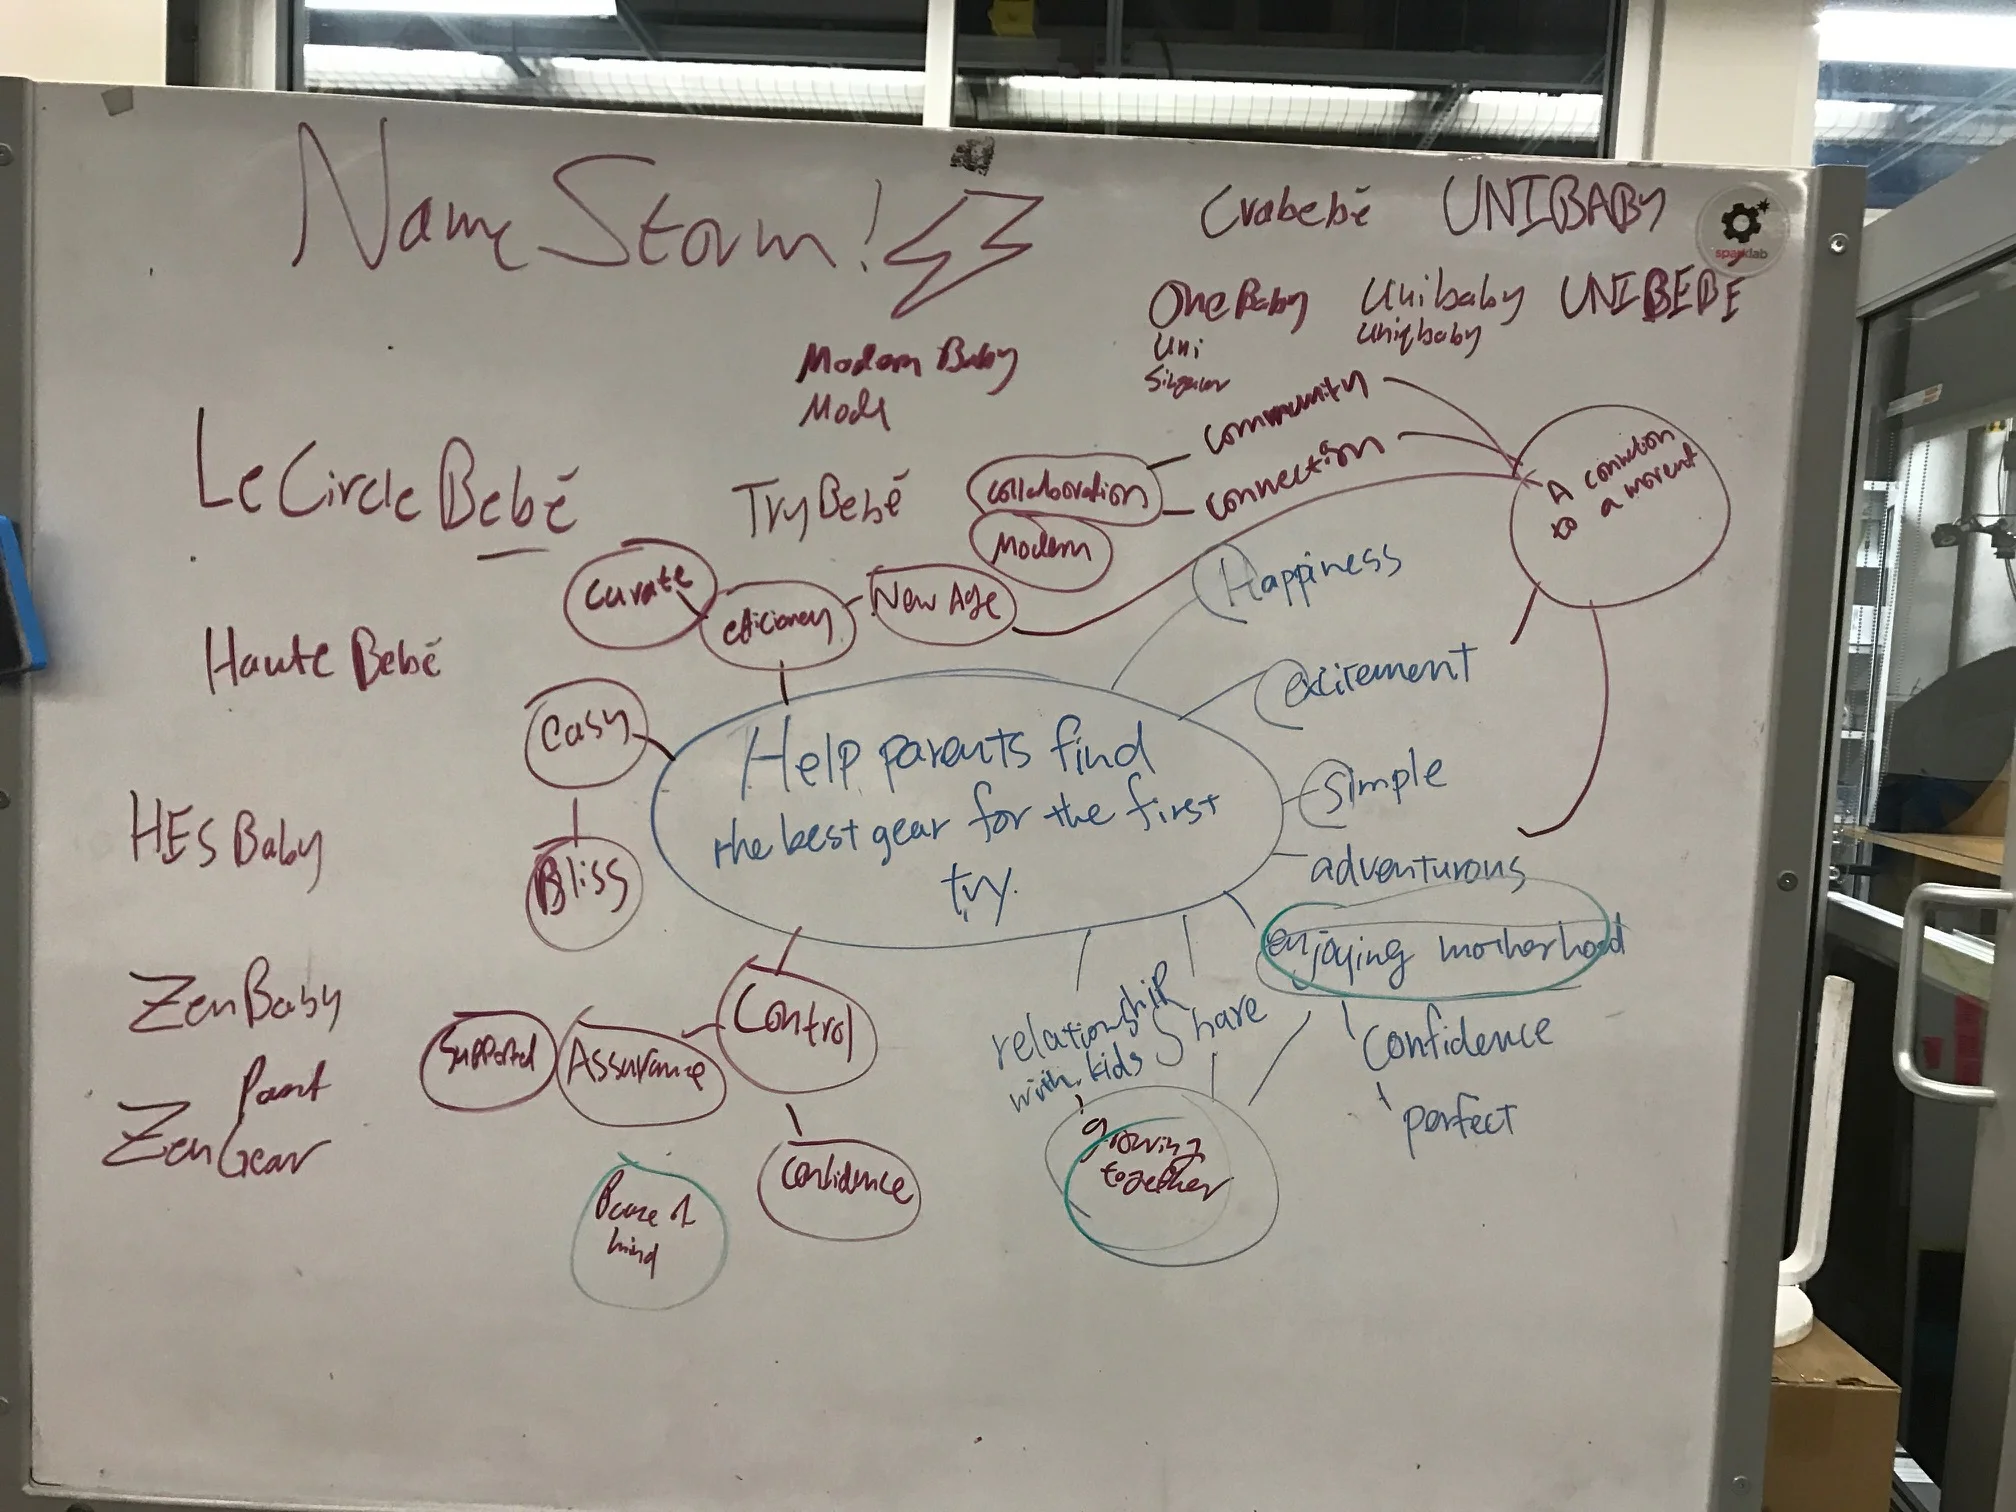 Name Storm!
Crabebé
UNIBABY
sparklab
One Baby
Unibaby
UNIBEBE
Uni
Uniqbaby
Singular
Modern Baby
Mode
Le Circle Bebé
Try Bebé
collaboration
community
connection
Modern
A connection
to a moment
Curate
efficiency
New Age
Happiness
Haute Bebé
excitement
easy
Help parents find
the best gear for the first
try.
simple
HES Baby
Bliss
adventurous
enjoying motherhood
Zen Baby
Control
relationship
with kids
Share
Confidence
Supported
Assurance
perfect
Zen Gear
growing
together
Confidence
Peace of
mind